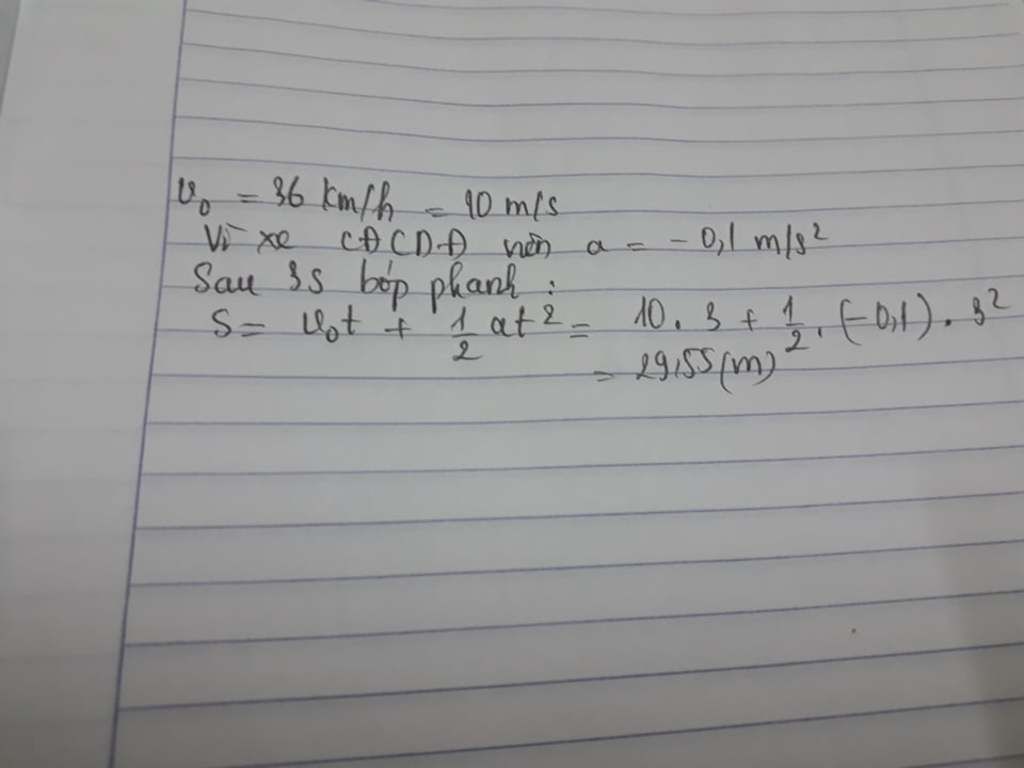 v₀ = 36 km/h = 10 m/s
Vì xe CĐCDĐ nên a = -0,1 m/s²
Sau 3s bóp phanh:
S = v₀t + 1/2 at² = 10.3 + 1/2.(-0,1).3²
= 29,55(m)